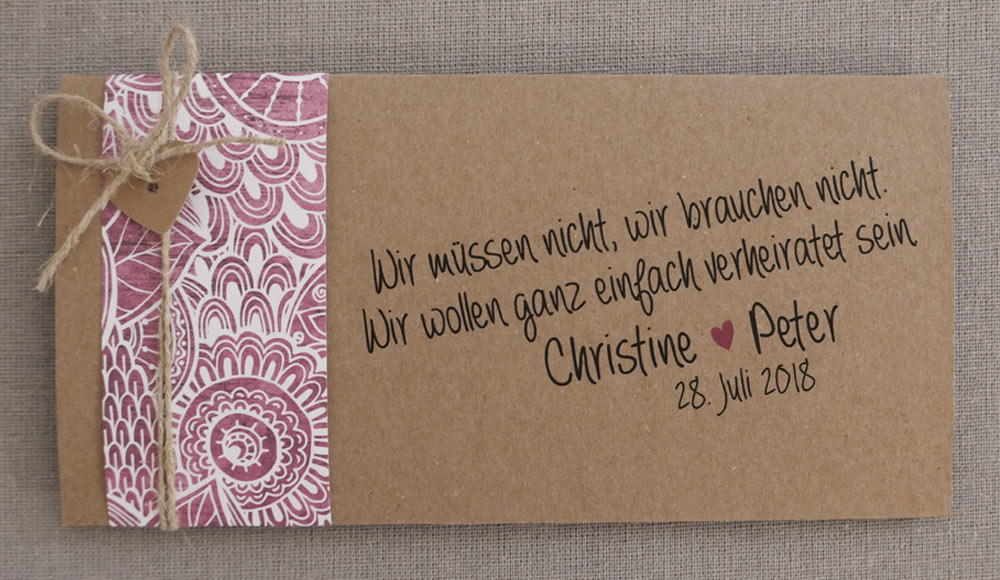 Wir müssen nicht, wir brauchen nicht.
Wir wollen ganz einfach verheiratet sein.
Christine ♥ Peter
28. Juli 2018